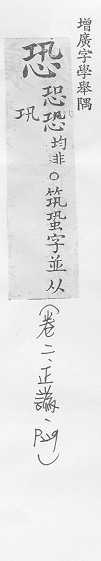 增廣字學舉隅
恐
恐均非○筑蛩字並从
巩
(卷二、正譌、P29)